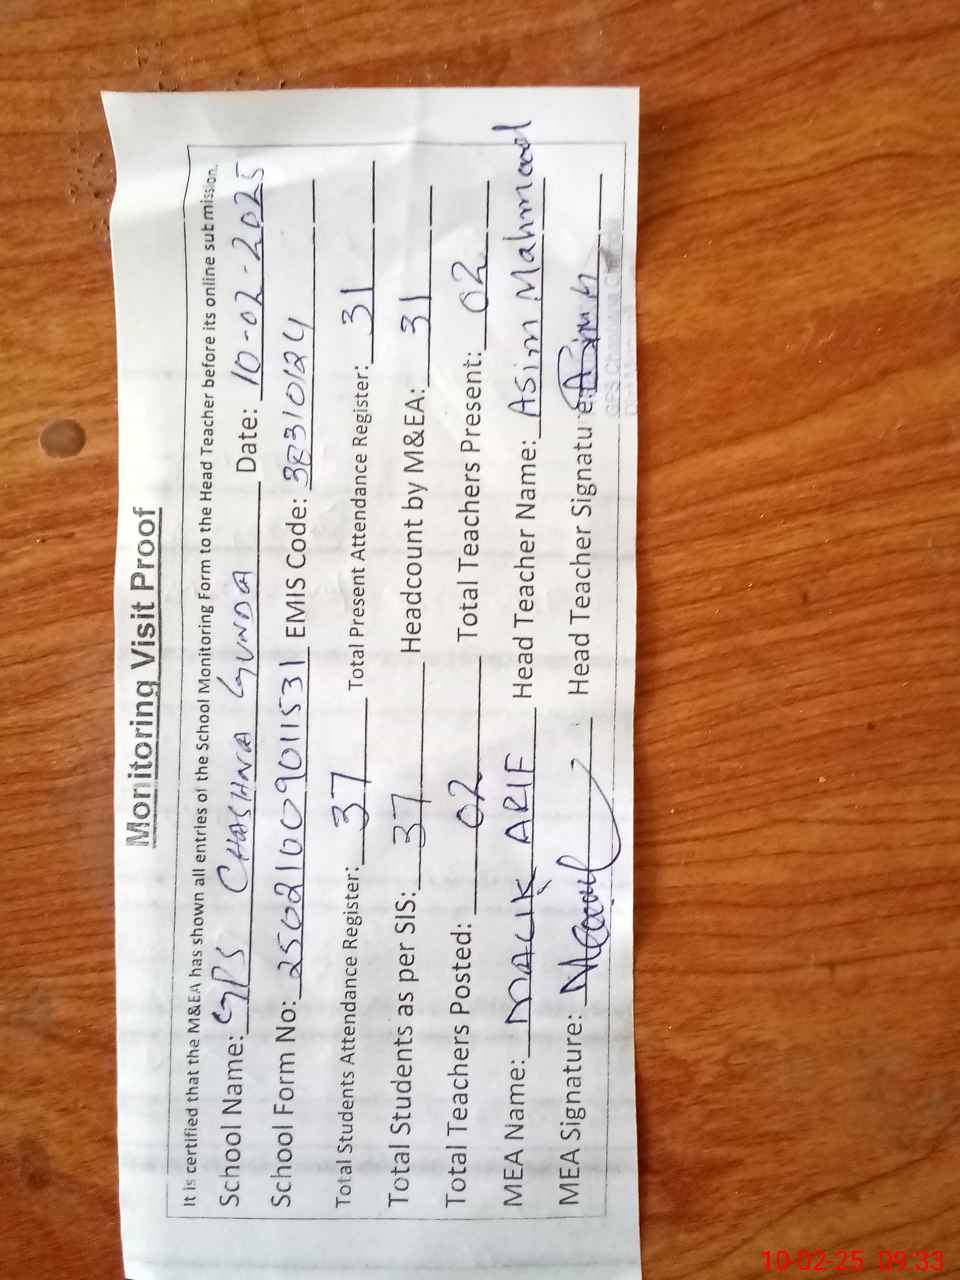 Monitoring Visit Proof
It is certified that the M&EA has shown all entries of the School Monitoring Form to the Head Teacher before its online submission.
School Name: GPS CHASHNA GUNDA Date: 10-02-2025
School Form No: 25021009011531 EMIS Code: 38310124
Total Students Attendance Register: 37 Total Present Attendance Register: 31
Total Students as per SIS: 37 Headcount by M&EA: 31
Total Teachers Posted: 02 Total Teachers Present: 02
MEA Name: MALIK ARIF Head Teacher Name: Asim Mahmood
MEA Signature: Head Teacher Signature:
10-02-25 09:33